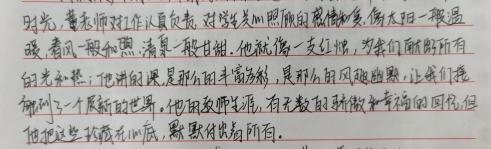 时光,董老师对工作认真负责,对学生关心照顾的慈僧如爱,像太阳一般温
暖,春风一般和煦,清泉一般甘甜.他就像一支红烛,为我们献出所有
的光和热;他讲的课,是那么的丰富多彩,是那么的风趣幽默,让我们接
触到了一个展新的世界。他的教师生涯,有无数的骄傲和幸福的回忆,但
他把这些珍藏在心底,默默付出着所有.